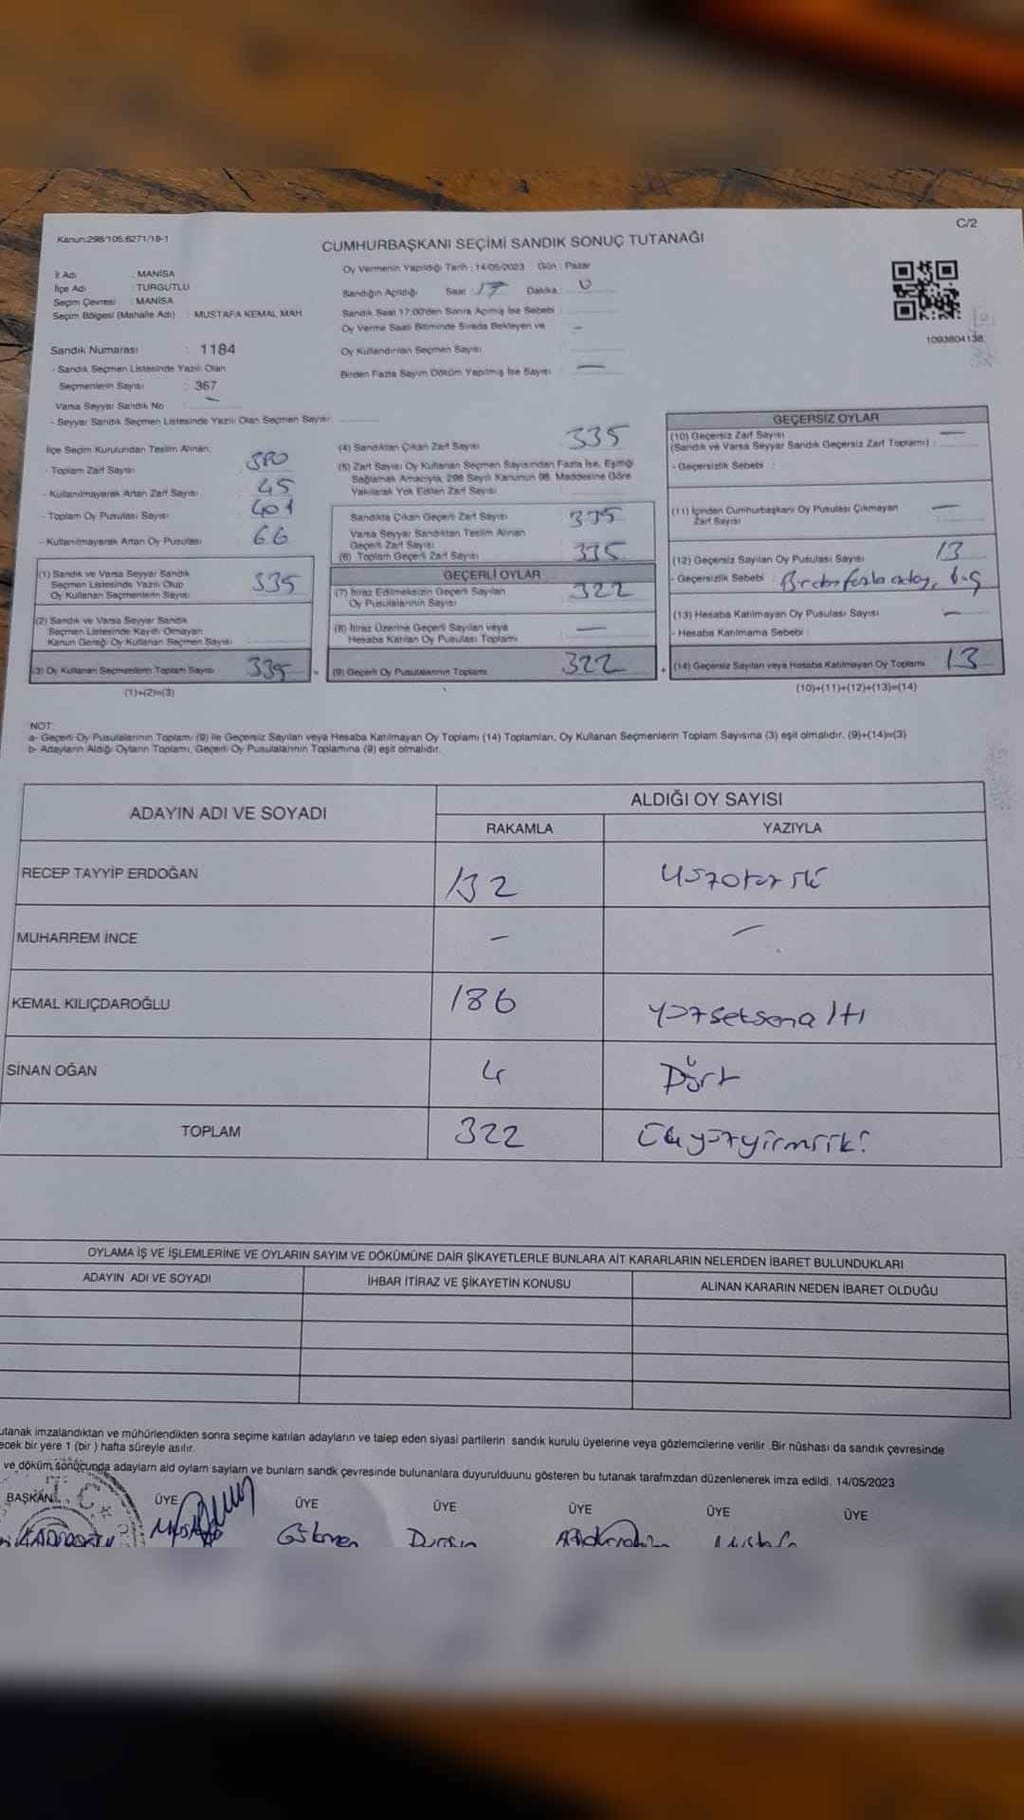 C/2
Kanun:298/105:6271/18-1
CUMHURBAŞKANI SEÇİMİ SANDIK SONUÇ TUTANAĞI
İl Adı : MANİSA
İlçe Adı : TURGUTLU
Seçim Çevresi : MANİSA
Seçim Bölgesi (Mahalle Adı) : MUSTAFA KEMAL MAH
Sandık Numarası : 1184
- Sandık Seçmen Listesinde Yazılı Olan
Seçmenlerin Sayısı : 367
Varsa Seyyar Sandık No –
- Seyyar Sandık Seçmen Listesinde Yazılı Olan Seçmen Sayısı
Oy Vermenin Yapıldığı Tarih : 14/05/2023 Gün : Pazar
Sandığın Açıldığı Saat : 17 Dakika : 0
Sandık Saat 17:00'den Sonra Açılmış İse Sebebi
Oy Verme Saati Bitiminde Sırada Bekleyen ve –
Oy Kullandırılan Seçmen Sayısı
Birden Fazla Sayım Döküm Yapılmış İse Sayısı —
1093804138
İlçe Seçim Kurulundan Teslim Alınan;
- Toplam Zarf Sayısı 380
- Kullanılmayarak Artan Zarf Sayısı 45
- Toplam Oy Pusulası Sayısı 401
- Kullanılmayarak Artan Oy Pusulası 66
(1) Sandık ve Varsa Seyyar Sandık
Seçmen Listesinde Yazılı Olup
Oy Kullanan Seçmenlerin Sayısı 335
(2) Sandık ve Varsa Seyyar Sandık
Seçmen Listesinde Kayıtlı Olmayan
Kanun Gereği Oy Kullanan Seçmen Sayısı
(3) Oy Kullanan Seçmenlerin Toplam Sayısı 335 =
(1)+(2)=(3)
(4) Sandıktan Çıkan Zarf Sayısı 335
(5) Zarf Sayısı Oy Kullanan Seçmen Sayısından Fazla İse, Eşitliği
Sağlamak Amacıyla, 298 Sayılı Kanunun 98. Maddesine Göre
Yakılarak Yok Edilen Zarf Sayısı
Sandıkta Çıkan Geçerli Zarf Sayısı 335
Varsa Seyyar Sandıktan Teslim Alınan
Geçerli Zarf Sayısı
(6) Toplam Geçerli Zarf Sayısı 335
GEÇERLİ OYLAR
(7) İtiraz Edilmeksizin Geçerli Sayılan
Oy Pusulalarının Sayısı 322
(8) İtiraz Üzerine Geçerli Sayılan veya
Hesaba Katılan Oy Pusulası Toplamı —
(9) Geçerli Oy Pusulalarının Toplamı 322 +
GEÇERSİZ OYLAR
(10) Geçersiz Zarf Sayısı —
(Sandık ve Varsa Seyyar Sandık Geçersiz Zarf Toplamı)
- Geçersizlik Sebebi :
(11) İçinden Cumhurbaşkanı Oy Pusulası Çıkmayan
Zarf Sayısı —
(12) Geçersiz Sayılan Oy Pusulası Sayısı 13
- Geçersizlik Sebebi : Birden fazla aday,
(13) Hesaba Katılmayan Oy Pusulası Sayısı —
- Hesaba Katılmama Sebebi :
(14) Geçersiz Sayılan veya Hesaba Katılmayan Oy Toplamı 13
(10)+(11)+(12)+(13)=(14)
NOT:
a- Geçerli Oy Pusulalarının Toplamı (9) ile Geçersiz Sayılan veya Hesaba Katılmayan Oy Toplamı (14) Toplamları, Oy Kullanan Seçmenlerin Toplam Sayısına (3) eşit olmalıdır. (9)+(14)=(3)
b- Adayların Aldığı Oyların Toplamı, Geçerli Oy Pusulalarının Toplamına (9) eşit olmalıdır.
ADAYIN ADI VE SOYADI ALDIĞI OY SAYISI
RAKAMLA YAZIYLA
RECEP TAYYİP ERDOĞAN 132 Yüzotuziki
MUHARREM İNCE – –
KEMAL KILIÇDAROĞLU 186 Yüzseksenaltı
SİNAN OĞAN 4 Dört
TOPLAM 322 Üçyüzyirmiiki
OYLAMA İŞ VE İŞLEMLERİNE VE OYLARIN SAYIM VE DÖKÜMÜNE DAİR ŞİKAYETLERLE BUNLARA AİT KARARLARIN NELERDEN İBARET BULUNDUKLARI
ADAYIN ADI VE SOYADI İHBAR İTİRAZ VE ŞİKAYETİN KONUSU ALINAN KARARIN NEDEN İBARET OLDUĞU
utanak imzalandıktan ve mühürlendikten sonra seçime katılan adayların ve talep eden siyasi partilerin sandık kurulu üyelerine veya gözlemcilerine verilir .Bir nüshası da sandık çevresinde
ecek bir yere 1 (bir ) hafta süreyle asılır.
ve döküm sonucunda adayların ald oyların sayları ve bunların sandk çevresinde bulunanlara duyurulduunu gösteren bu tutanak tarafmzdan düzenlenerek imza edildi. 14/05/2023
BAŞKAN ÜYE ÜYE ÜYE ÜYE ÜYE ÜYE
T.C.
Mustafa Gökmen Dursun Abdurrahim Mustafa